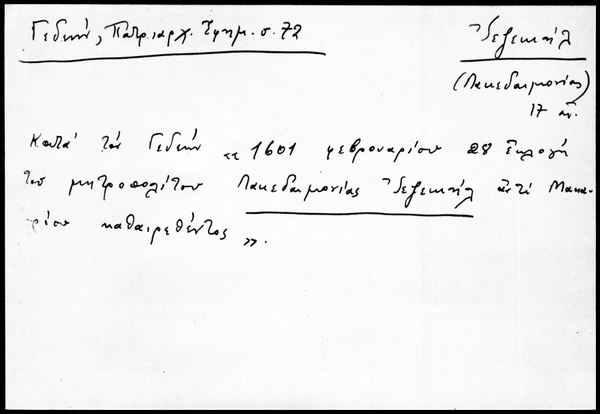 Γεδεών, Πατριαρχ. Εφημ. σ. 72
Ἰεζεκιήλ
(Λακεδαιμονίας)
17 αἰ.
Κατά τόν Γεδεών « 1601 φεβρουαρίου 28 ἐκλογή
τοῦ μητροπολίτου Λακεδαιμονίας Ἰεζεκιήλ ἀντί Μακα-
ρίου καθαιρεθέντος ».